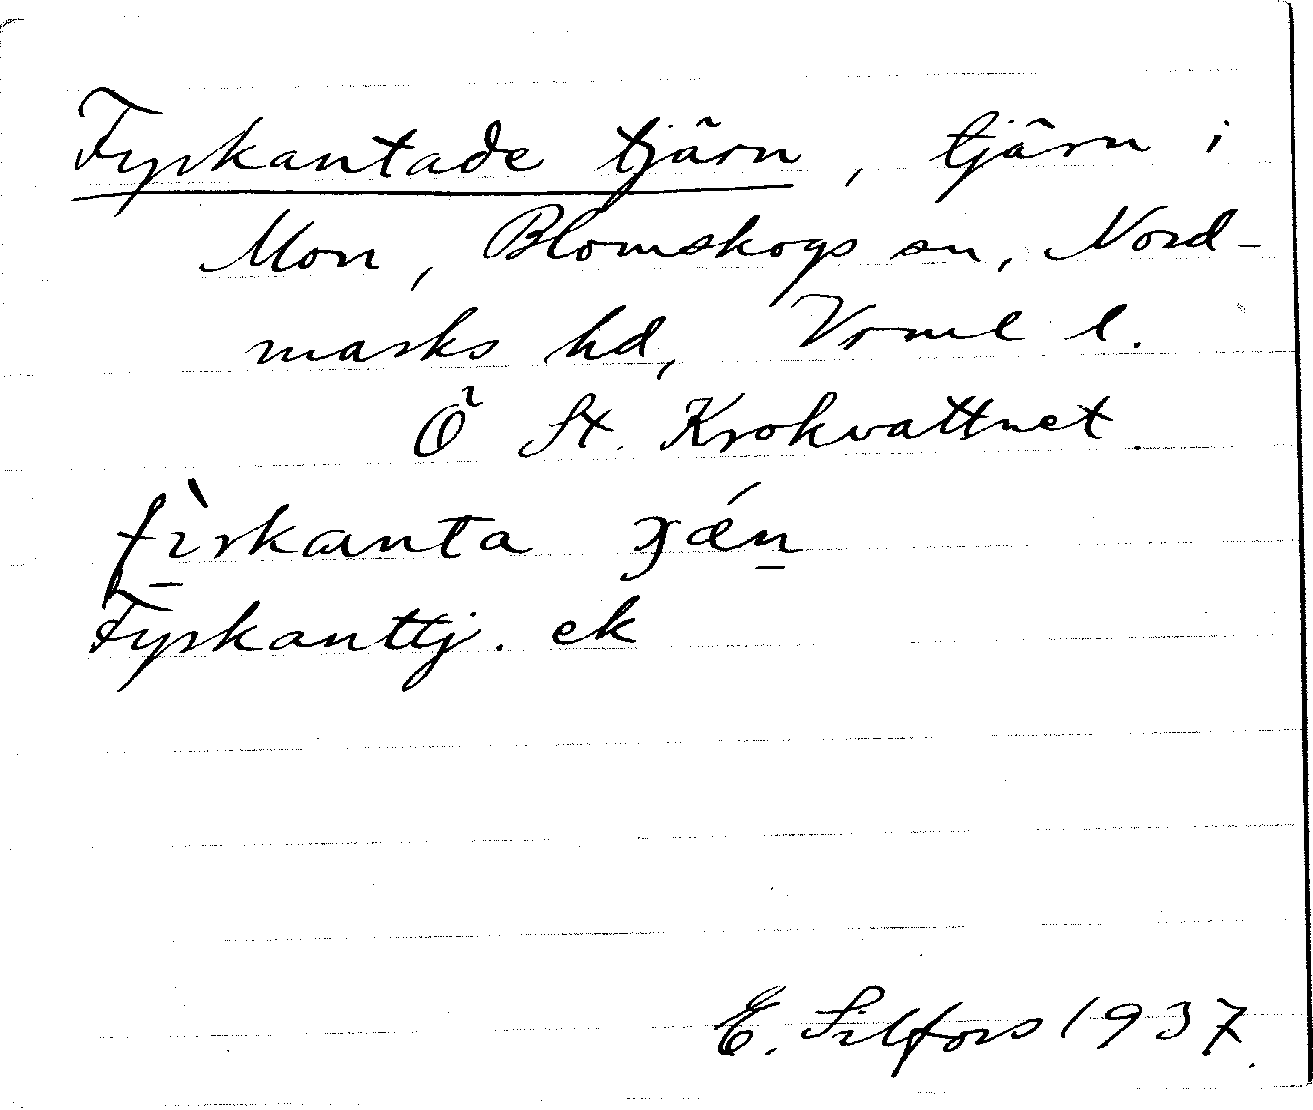 Fyrkantade tjärn, tjärn i
Mon, Blomskogs sn, Nord-
marks hd, Vrml l.
Ö St. Krokvattnet.
fìrkanta
Fyrkanttj. ek
E. Silfors 1937.